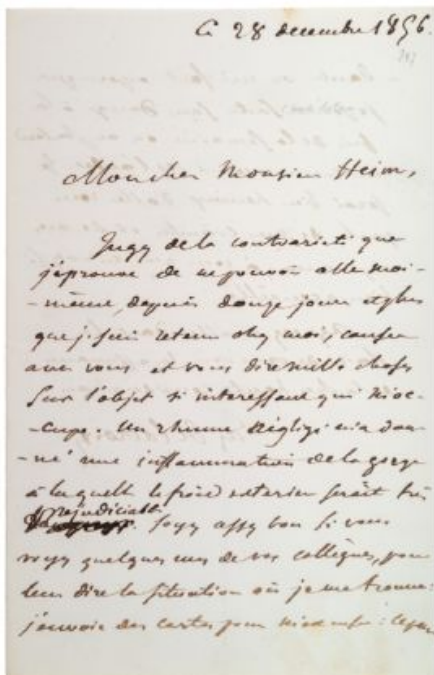 Ce 28 decembre 1856.
Mon cher Monsieur Heim,
Jugez de la contrariété que
j'éprouve de ne pouvoir aller moi-
-même, depuis douze jours et plus
que je suis retenu chez moi, causer
avec vous et vous dire mille choses
sur l'objet si intéressant qui m'oc-
-cupe. Un rhume négligé m'a don-
-né une inflammation de la gorge
à laquelle le froid extérieur serait très
préjudiciable
Soyez assez bon si vous
voyez quelques uns de vos collègues, pour
leur dire la situation où je me trouve:
j'envoie des cartes pour m'excuser: